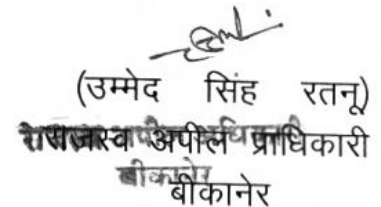 (उम्मेद सिंह रतनू)
राजस्व अपील प्राधिकारी
बीकानेर
बीकानेर